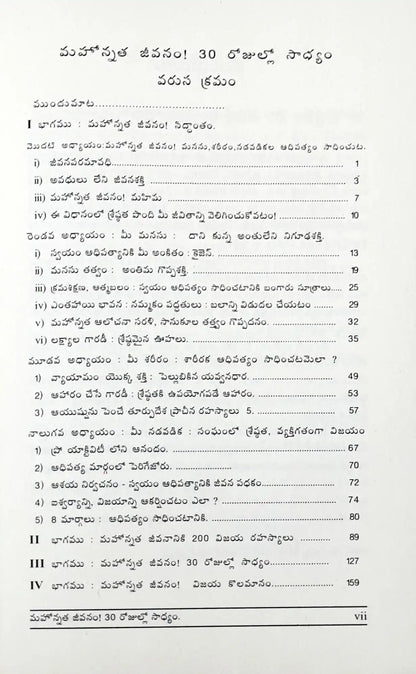 మహోన్నత జీవనం! 30 రోజుల్లో సాధ్యం
వరుస క్రమం
ముందుమాట..............................
I భాగము : మహోన్నత జీవనం! సిద్ధాంతం.
మొదటి అధ్యాయం:మహోన్నత జీవనం! మనను,శరీరం,నడవడికల ఆధిపత్యం సాధించుట.
i) జీవనపరమావధి.................... 1
ii) అవధులు లేని జీవనశక్తి .................... 3
iii) మహోన్నత జీవనం! మహిమ .................... 7
iv) ఈ విధానంలో శ్రేష్ఠత పొంది మీ జీవితాన్ని వెలిగించుకోవటం! .................... 10
రెండవ అధ్యాయం : మీ మనను : దాని కున్న అంతులేని నిగూఢశక్తి.
i) స్వయం ఆధిపత్యానికి మీ అంకితం : కైజెన్. .................... 13
ii) మనను తత్వం : అంతిమ గొప్పశక్తి. .................... 19
iii) క్రమశిక్షణ, ఆత్మబలం : స్వయం ఆధిపత్యం సాధించటానికి బంగారు సూత్రాలు..... 25
iv) ఎంతహాయి భావన : నమ్మకం పద్ధతులు : బలాన్ని విడుదల చేయటం ........ 29
v) మహోన్నత ఆలోచనా సరళి, సానుకూల తత్త్వం గొప్పదనం. .................... 32
vi) లక్ష్యాల గారడీ : శ్రేష్ఠమైన ఊహలు. .................... 35
మూడవ అధ్యాయం : మీ శరీరం : శారీరక ఆధిపత్యం సాధించటమెలా ?
1) వ్యాయామం యొక్క శక్తి : పెల్లుబికిన యవ్వనధార. .................... 49
2) ఆహారం చేసే గారడీ : శ్రేష్ఠతకి ఉపయోగపడే ఆహారం. .................... 53
3) ఆయుష్షును పెంచే తూర్పుదేశ ప్రాచీన రహస్యాలు 5. .................... 57
నాలుగవ అధ్యాయం : మీ నడవడిక : సంఘంలో శ్రేష్ఠత, వ్యక్తిగతంగా విజయం
1) ప్రో యాక్టివిటీ లోని ఆనందం. .................... 67
2) ఆధిపత్య మార్గంలో పెరిగేజోరు. .................... 70
3) ఆశయ నిర్వచనం - స్వయం ఆధిపత్యానికి జీవన పధకం.................... 72
4) ఐశ్వర్యాన్ని, విజయాన్ని ఆకర్షించటం ఎలా ? .................... 74
5) 8 మార్గాలు : ఆధిపత్యం సాధించటానికి. .................... 80
II భాగము : మహోన్నత జీవనానికి 200 విజయ రహస్యాలు .................... 89
III భాగము : మహోన్నత జీవనం! 30 రోజుల్లో సాధ్యం.................... 127
IV భాగము : మహోన్నత జీవనం! విజయ కొలమానం..................... 159
మహోన్నత జీవనం! 30 రోజుల్లో సాధ్యం. vii